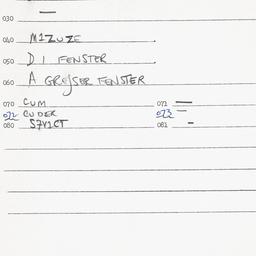 030 —
040 MIZUZE
050 DI FENSTER
060 A GROSSER FENSTER
070 CUM 071 —
072 CUDER 073 —
080 S7V1CT 081 -